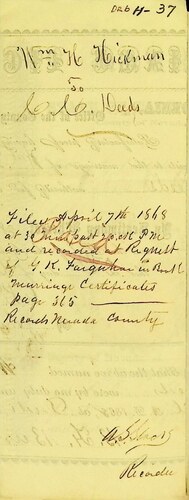 H-37
Wm H Hickman
to
C. C. Deeds
Filed April 7th 1868
at 30 min past 2 o'clk P.M
and recorded at Request
of G. K. Farquhar in Book 1
Marriage Certificates
page 365
Records Nevada County
Recorder